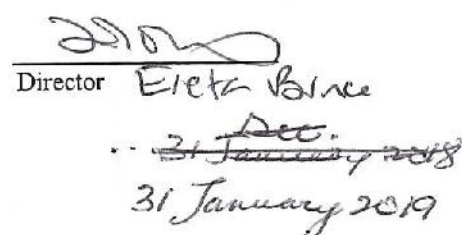 Director Eleta Brince
Dec.
31 January 2018
31 January 2019